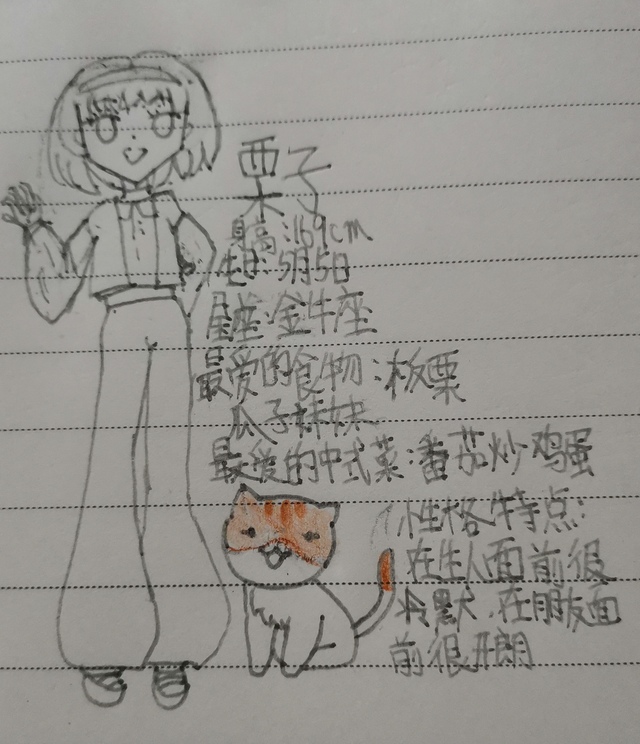 栗子
身高:169cm
生日:5月5日
星座:金牛座
最爱的食物:板栗
瓜子妹妹
最爱的中式菜:番茄炒鸡蛋
性格特点:
在生人面前很
冷默.在朋友面
前很开朗